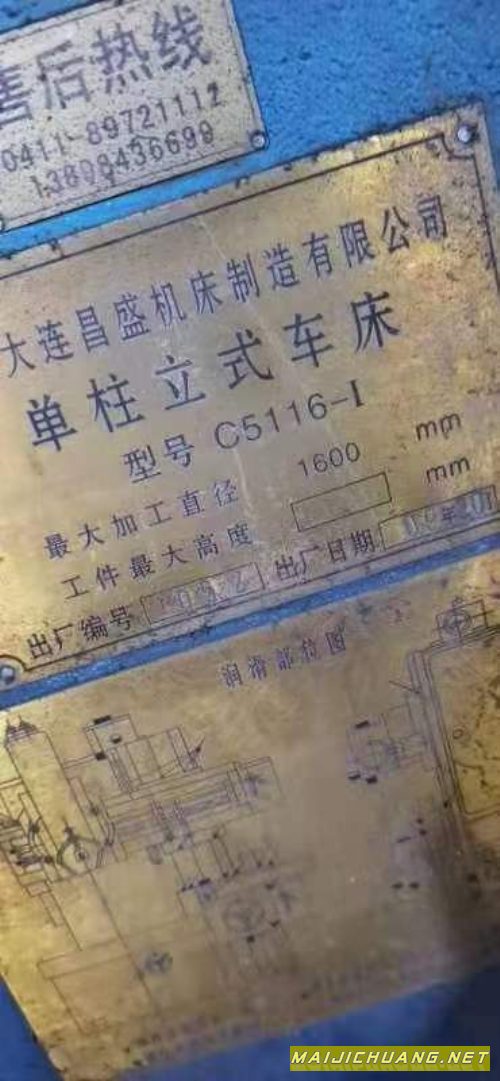 售后热线
0411-89721112
13898436699
大连昌盛机床制造有限公司
单柱立式车床
型号 C5116-I
最大加工直径 1600 mm
工件最大高度 mm
出厂编号 出厂日期 年
润滑部位图
MAIJICHUANG.NET